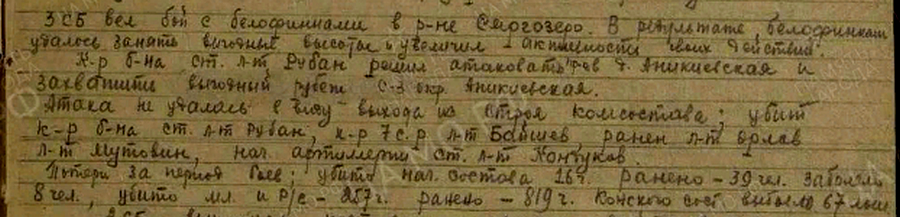 3 СБ вел бой с белофиннами в р-не Сяргозеро. В результате, белофиннам
удалось занять выгодные высоты и увеличил активности своих действий.
К-р б-на ст. л-т Рубан решил атаковать д. Аникиевская и
захватить выгодный рубеж С-З окр. Аникиевская.
Атака не удалась в виду выхода из строя комсостава; убит
к-р б-на ст. л-т Рубан, к-р 7 с.р л-т Байшев, ранен л-т Орлов
л-т Мутовин, нач. артиллерии ст. л-т
Потери за период боев; убито нач. состава 16 ч. ранено - 39 чел. заболело
8 чел., убито мл. и р/с - 257 ч. ранено - 819 ч. Конского сост. выбыло 67 лош